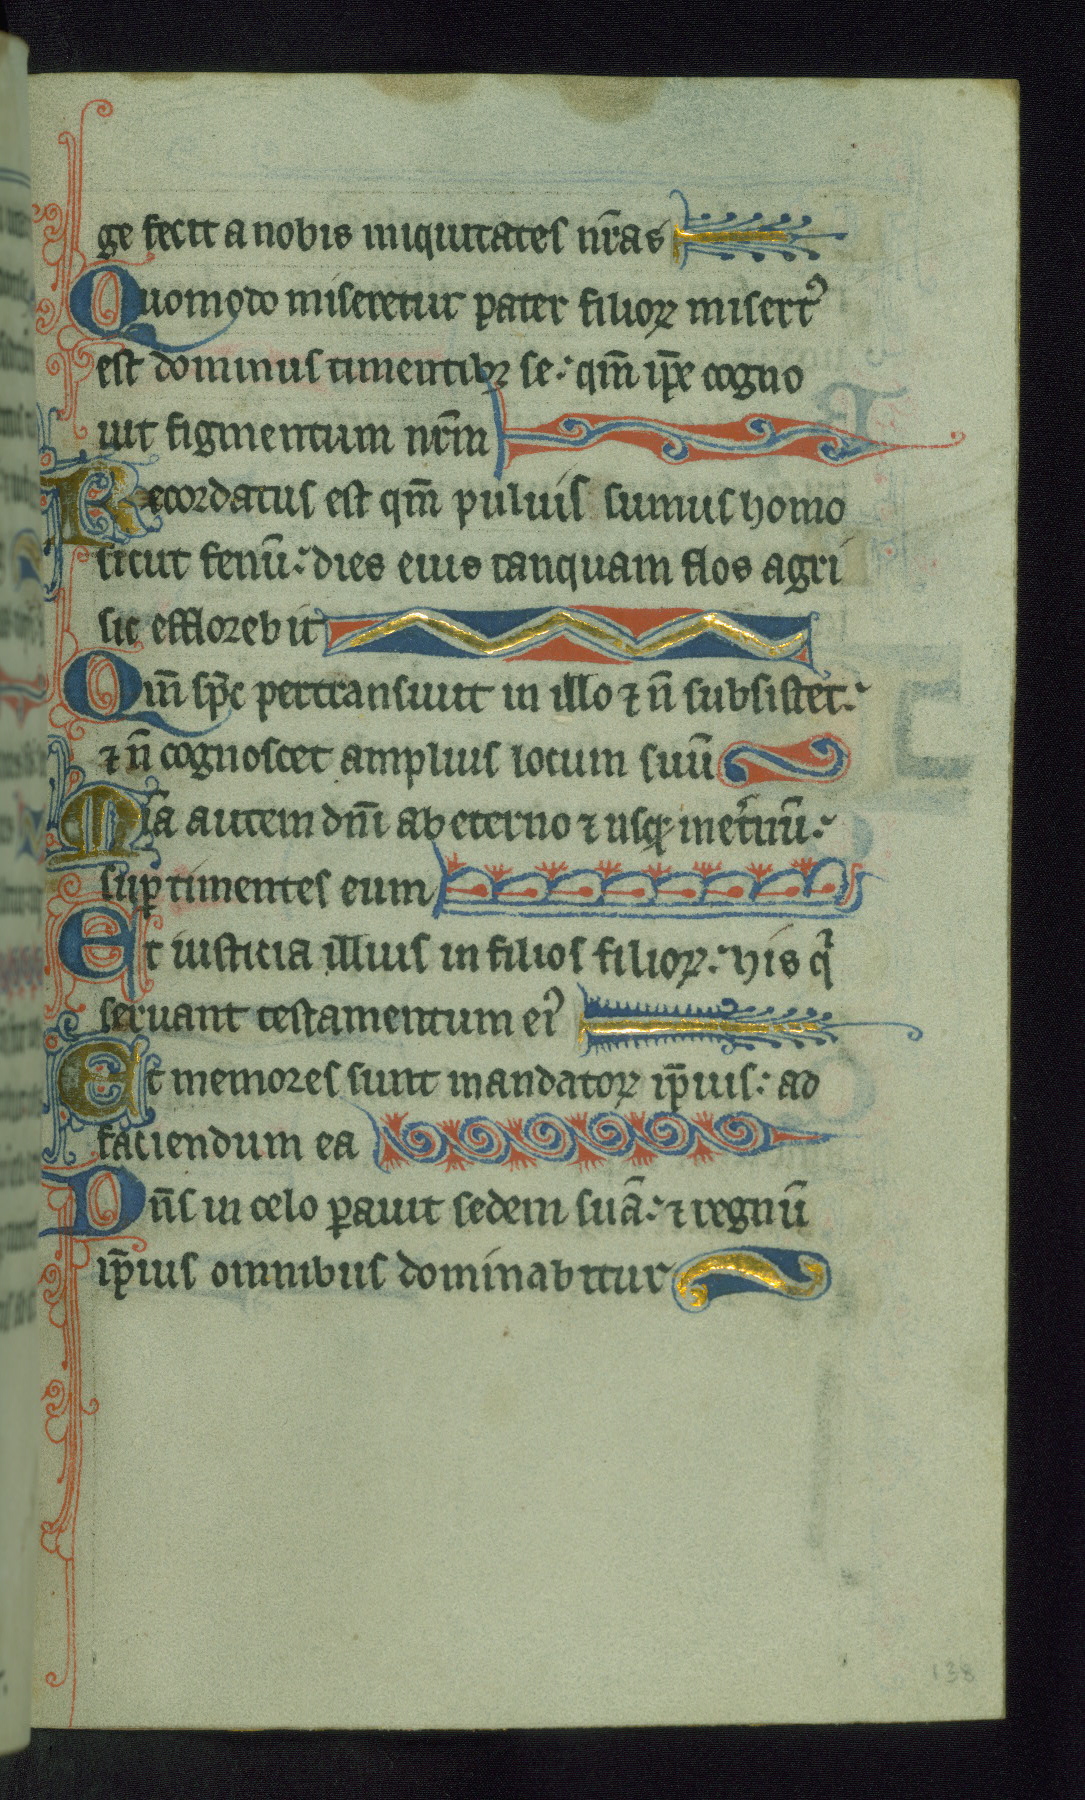 ge fecit a nobis iniquitates nr̄as
Quomodo miseretur pater filioꝝ misertꝰ
est dominus timentibꝫ se: qm̄ ip̄e cogno
uit figmentum nr̄m
Recordatus est qm̄ puluis sumus homo
sicut fenū: dies eius tanquam flos agri
sic efflorebit
Qm̄ sp̄c pertransiuit in illo ⁊ n̄ subsistet:
⁊ n̄ cognoscet amplius locum suū
Mīa autem dn̄i ab eterno ⁊ usqꝫ inet̾nū:
suꝑ timentes eum
Et iusticia illius in filios filioꝝ: his qͥ
seruant testamentum eiꝰ
Et memores sunt mandatoꝝ ip̄ius: ad
faciendum ea
Dn̄s in celo ꝑauit sedem suā: ⁊ regnū
ip̄ius omnibus dominabitur
138